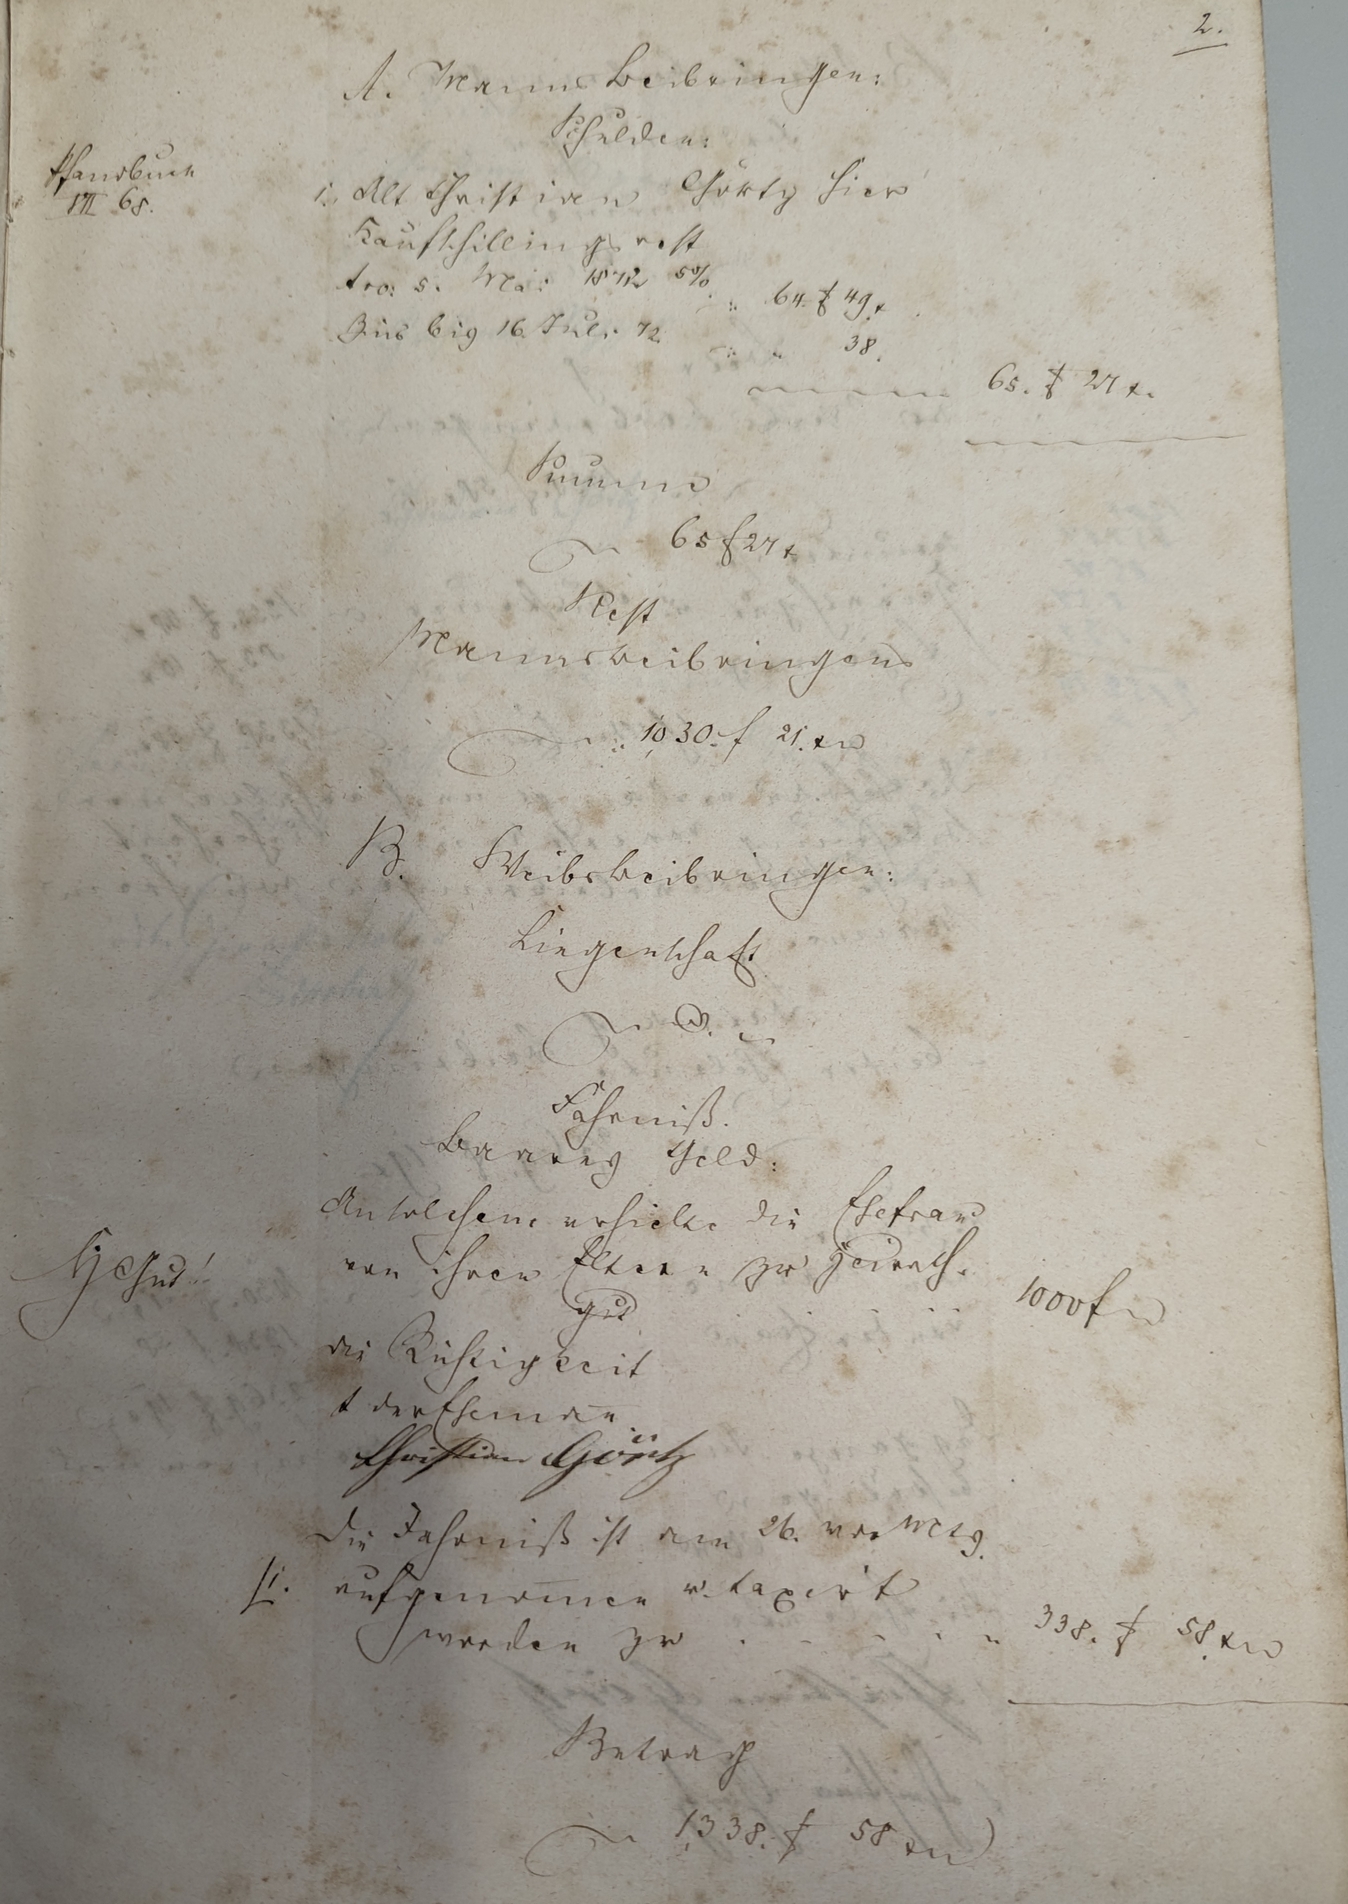 2.
A. Manns Beibringen:
Schulden:
Pfandbuch
III 68.
1., Alt Christian Görtz hier
Kaufschillingsrest
tro: 5. Mai 1872 5%
" 64. f 49. x
Zins bis 16. Juli 72.
" " 38.
65. f 27 x.
Summe
65 f 27 x
Rest
Mannsbeibringens
" 1030. f 21. x
B. Weibsbeibringen:
Liegenschaft
0.
Fahrniß.
Baares Geld:
An solchem erhielte die Ehefrau
von ihren Eltern zu Heirath-
gut
1000 f
H Gut!
die Richtigkeit
t der Ehemann
Christian Görtz
Die Fahrniß ist am 26. vor. Mts.
/1. aufgenommen u. taxirt
worden zu . . . . . "
338. f 58. x
Betrag
1338. f 58 x